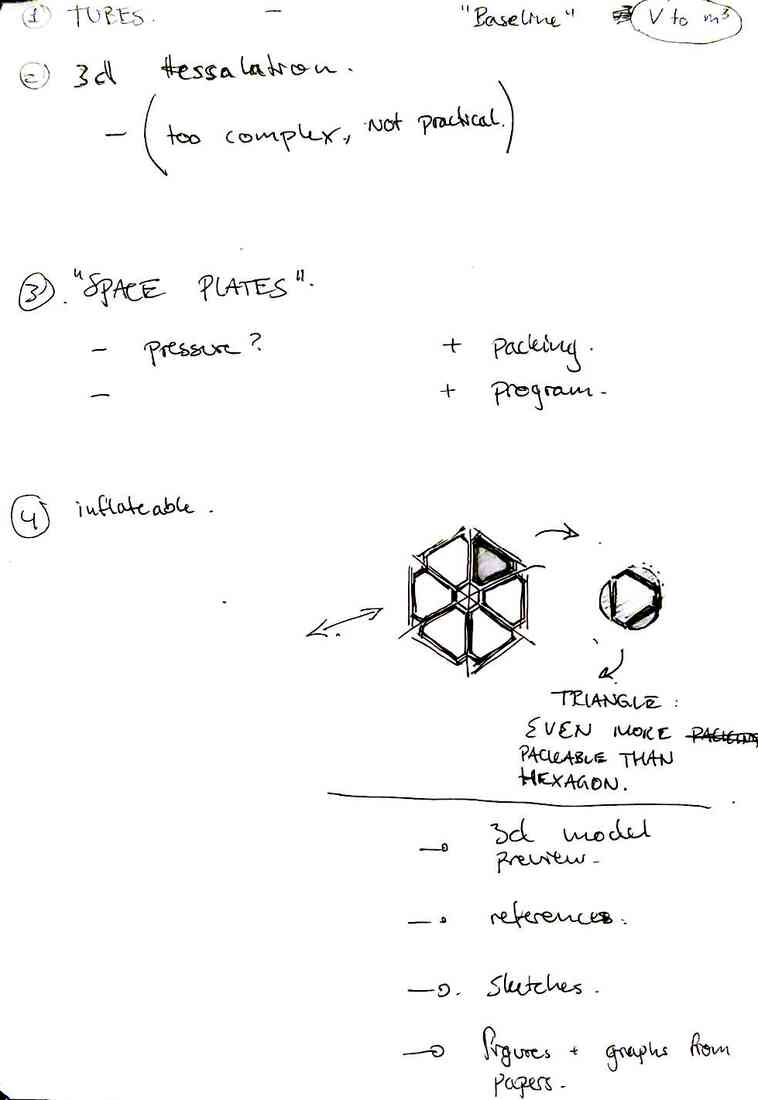 ① TUBES. – "Baseline" V to m³
② 3d tessalation.
– (too complex, Not practical.)
③. "SPACE PLATES".
– pressure? + packing.
– + program.
④ inflateable.
TRIANGLE:
EVEN MORE
PACKABLE THAN
HEXAGON.
3d model
preview.
references.
Sketches.
figures + graphs from
papers.